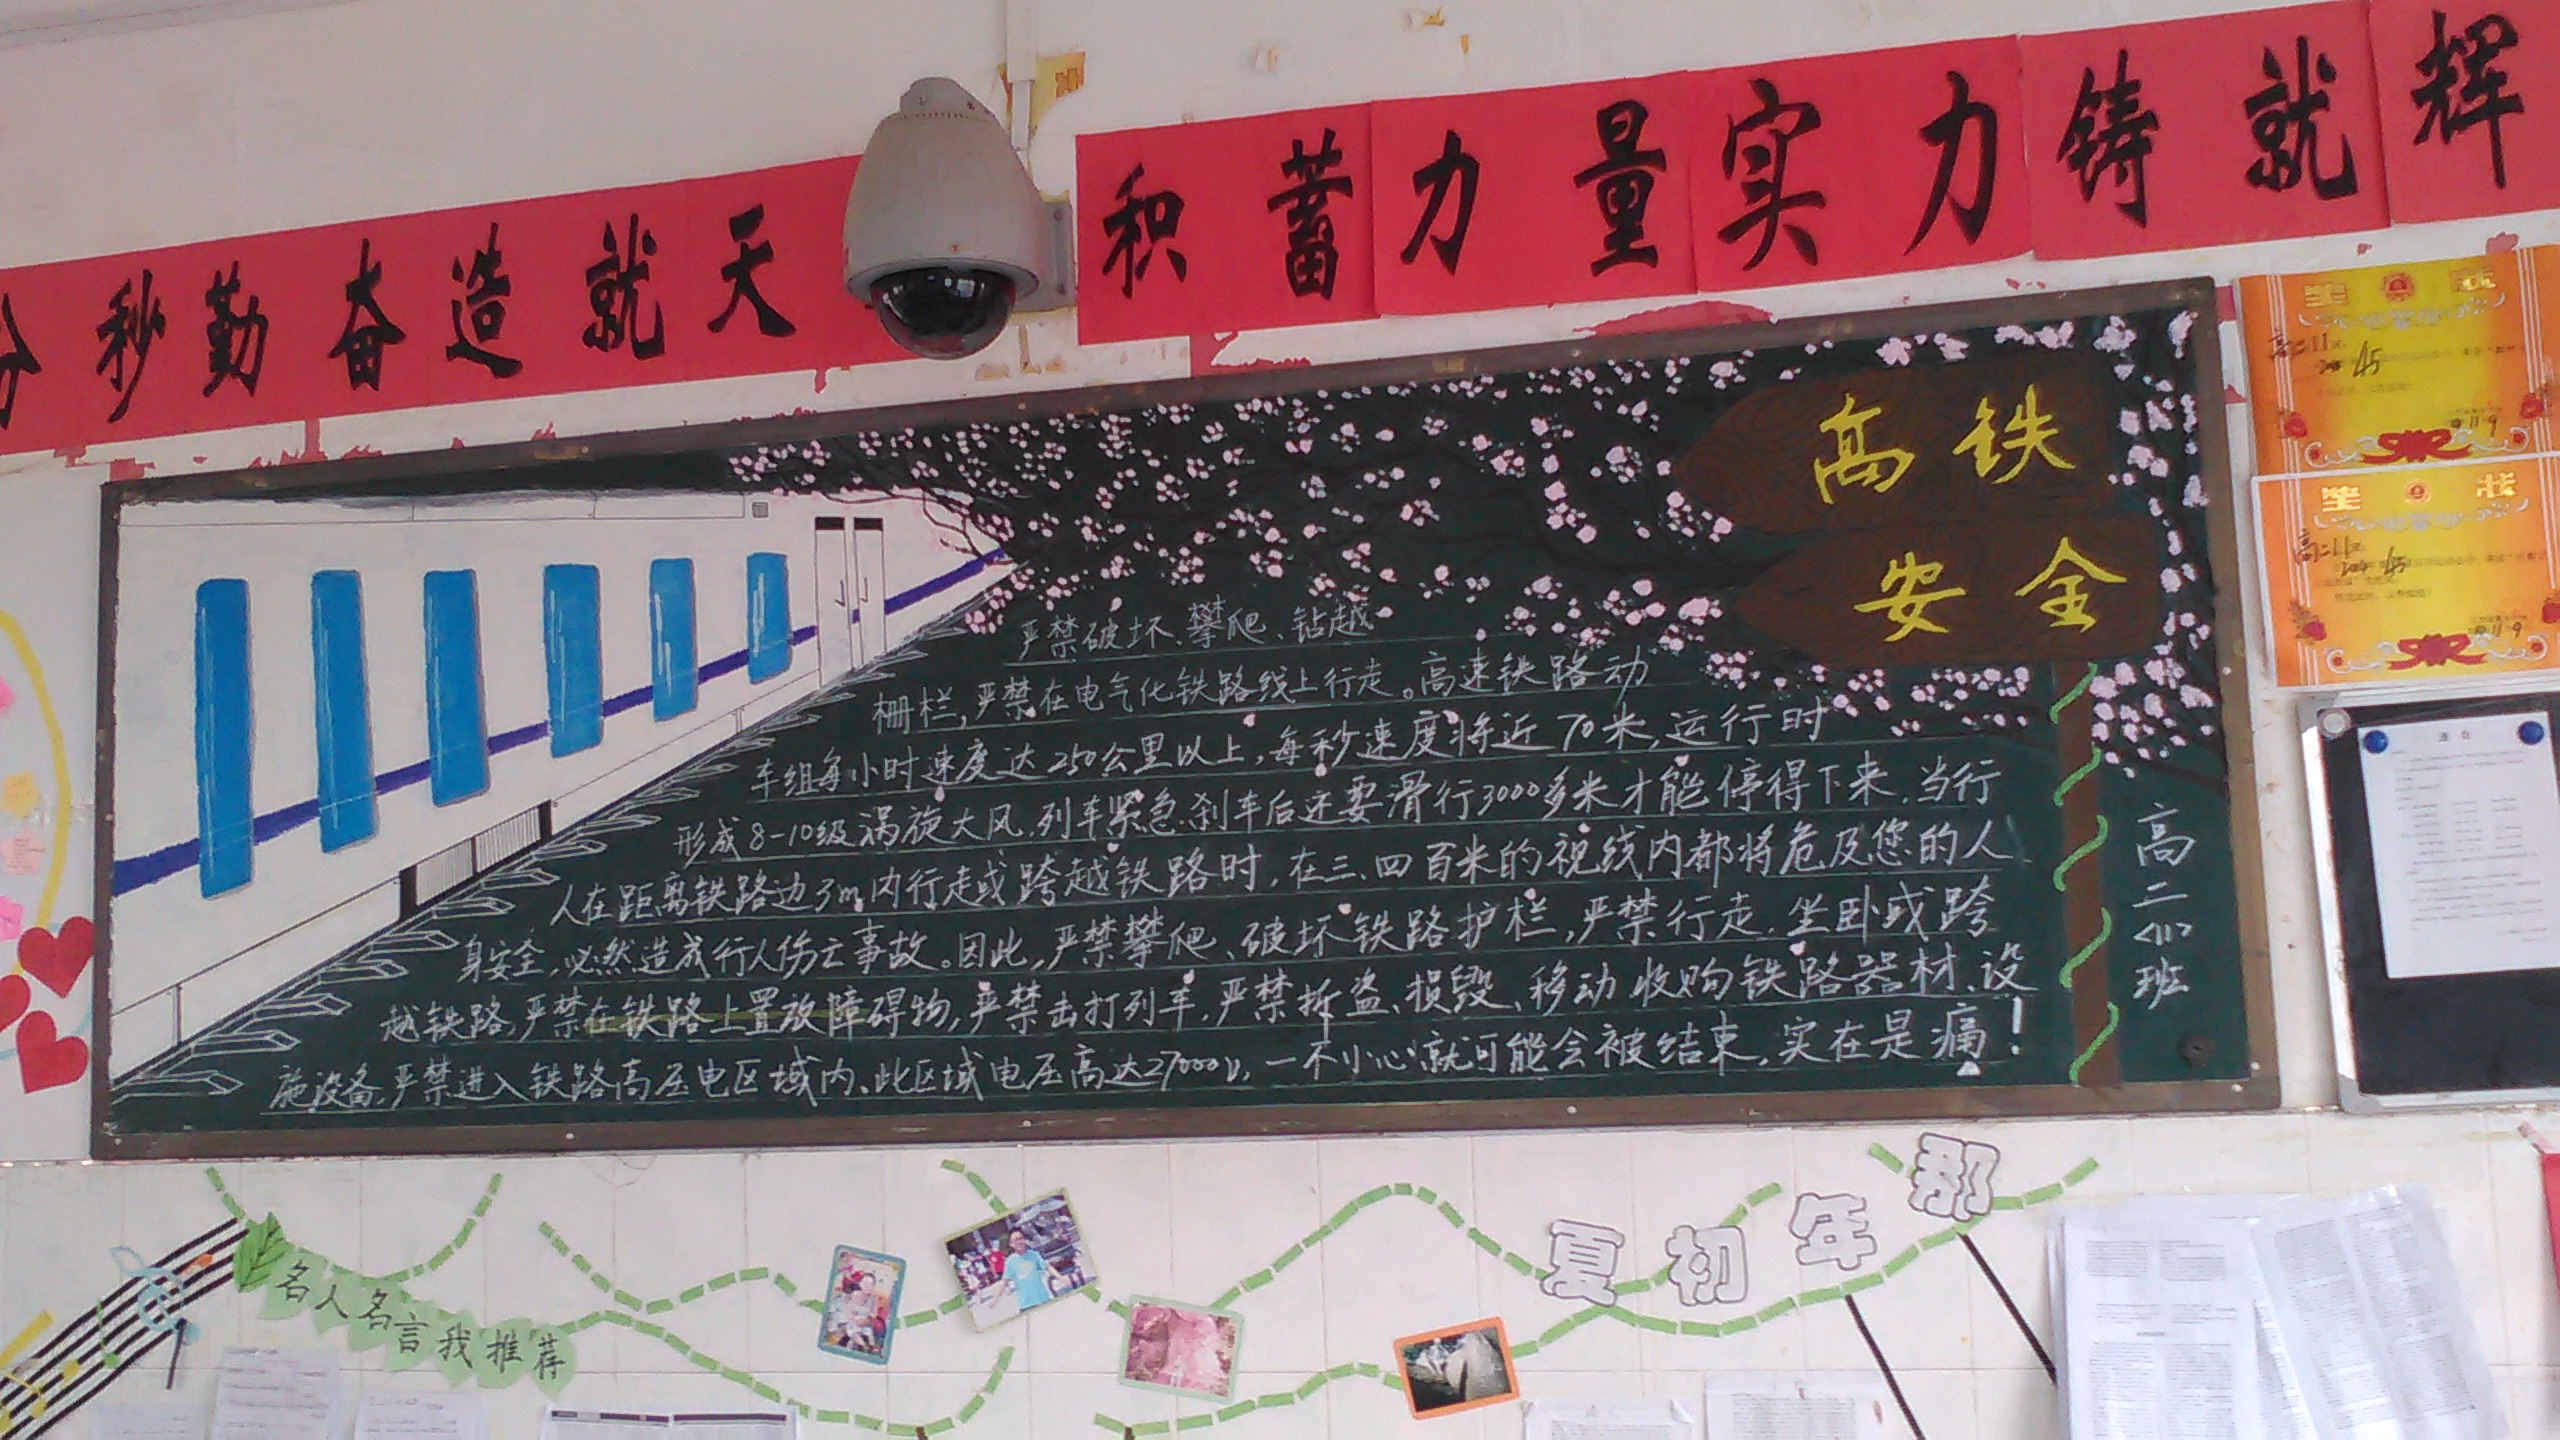 分秒勤奋造就天
积蓄力量实力铸就辉
高铁
安全
严禁破坏、攀爬、钻越
栅栏,严禁在电气化铁路线上行走。高速铁路动
车组每小时速度达250公里以上,每秒速度将近70米,运行时
形成8-10级涡旋大风.列车紧急刹车后还要滑行3000多米才能停得下来.当行
人在距离铁路边3m内行走或跨越铁路时,在三、四百米的视线内都将危及您的人
身安全,必然造成行人伤亡事故。因此,严禁攀爬、破坏铁路护栏,严禁行走.坐卧或跨
越铁路,严禁在铁路上置放障碍物,严禁击打列车,严禁拆盗、损毁、移动收购铁路器材、设
施设备,严禁进入铁路高压电区域内.此区域电压高达27000V,一不小心就可能会被结束,实在是痛!
高二<11>班
奖状
高二11
奖状
高二11
名人名言我推荐
夏初年那